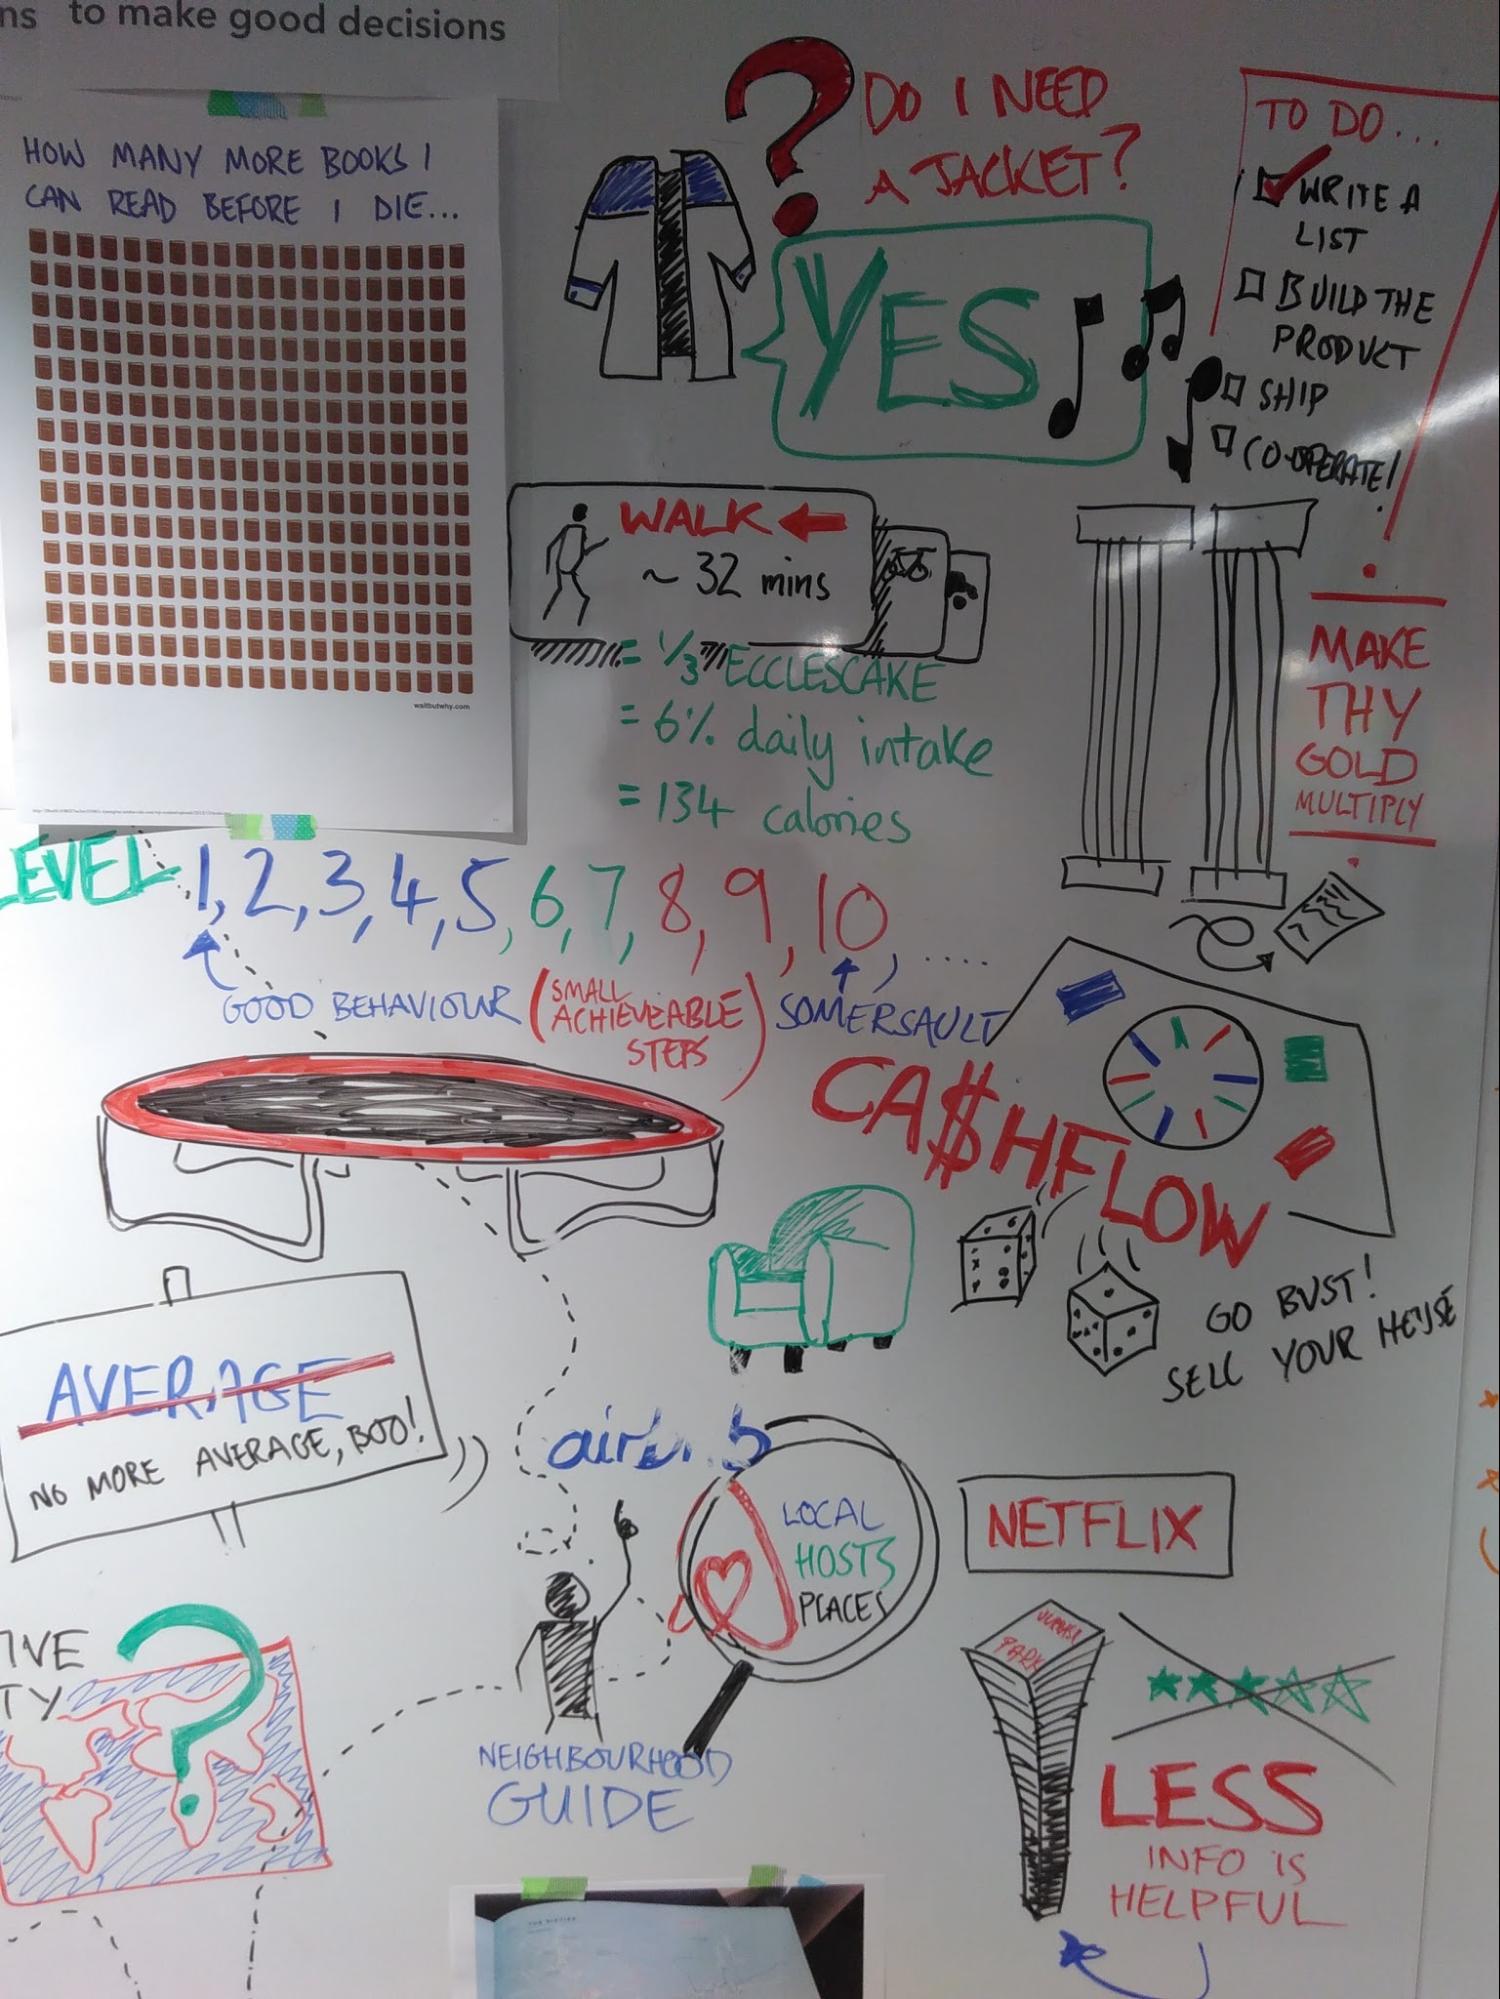 ns to make good decisions
HOW MANY MORE BOOKS I
CAN READ BEFORE I DIE...
waitbutwhy.com
DO I NEED
A JACKET?
YES
TO DO...
WRITE A
LIST
BUILD THE
PRODUCT
SHIP
CO-OPERATE!
WALK
~ 32 mins
= 1/3 ECCLESCAKE
= 6% daily intake
= 134 calories
MAKE
THY
GOLD
MULTIPLY
LEVEL 1, 2, 3, 4, 5, 6, 7, 8, 9, 10, .....
GOOD BEHAVIOUR (SMALL
ACHIEVEABLE
STEPS)
SOMERSAULT
CA$HFLOW
GO BUST!
SELL YOUR HOUSE
AVERAGE
NO MORE AVERAGE, BOO!
airbnb
LOCAL
HOSTS
PLACES
NEIGHBOURHOOD
GUIDE
NETFLIX
JURASSI
PARK
LESS
INFO IS
HELPFUL
IVE
TY